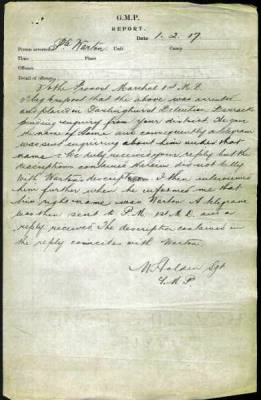 G.M.P.
REPORT.
Date 1. 2. 17
Person arrested Pte Warton Unit Camp
Time Place
Offence
Detail of
To the Provost Marshal 1st M.D.
I beg to report that the above was arrested
and placed in Darlinghurst Detention Barrack
pending enquiry from your district. He gave
the name of and consequently a telegram
was sent enquiring about him under that
name. We duly received your reply but the
description contained did not tally
with Warton's description. I then interviewed
him further when he informed me that
his right name was Warton. A telegram
was then sent to P.M. 1st M.D. and a
reply received. The description contained in
the reply connected with Warton.
Sgt
G.M.P.